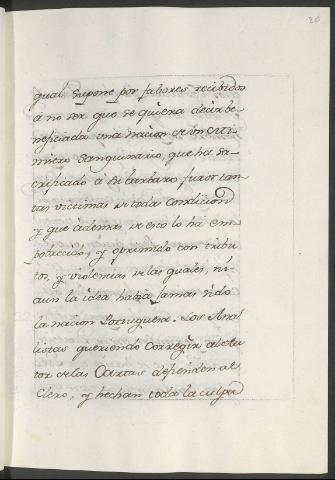 20
gual supone por fabores recibidos
a no ser que se quiera decir be-
neficiada una nacion de un cru-
misero sanguinario, que ha sa-
crificado á su barbaro furor tan-
tas victimas de toda condicion
y que ádemas de esto lo há em
pobrecido, y oprimido con tribu
tos, y violencias de las quales, ni
aun la idea había jamas tido
la nacion Portuguesa. Los Anal
listas queriendo corregir al
tor de las Cartas defienden al
Clero, y hechan toda la culpa